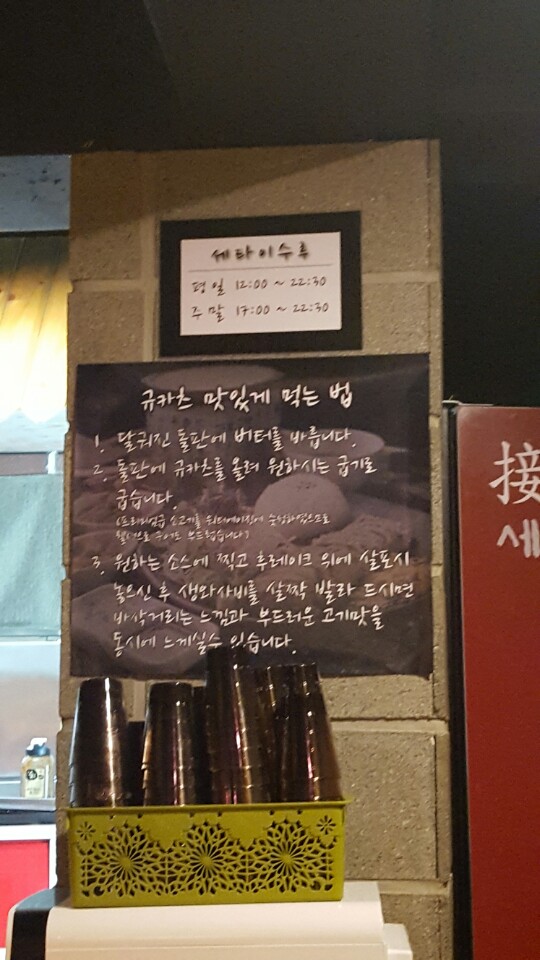 세타이수루
평일 12:00 ~ 22:30
주말 17:00 ~ 22:30
규카츠 맛있게 먹는 법
1. 달궈진 돌판에 버터를 바릅니다.
2. 돌판에 규카츠를 올려 원하시는 굽기로
굽습니다.
(프리미엄급 소고기를 숙성하였으므로
구어도 부드럽습니다)
3. 원하는 소스에 찍고 후레이크 위에 살포시
놓으신 후 생와사비를 살짝 발라 드시면
바삭거리는 느낌과 부드러운 고기맛을
동시에 느끼실수 있습니다.
接
세